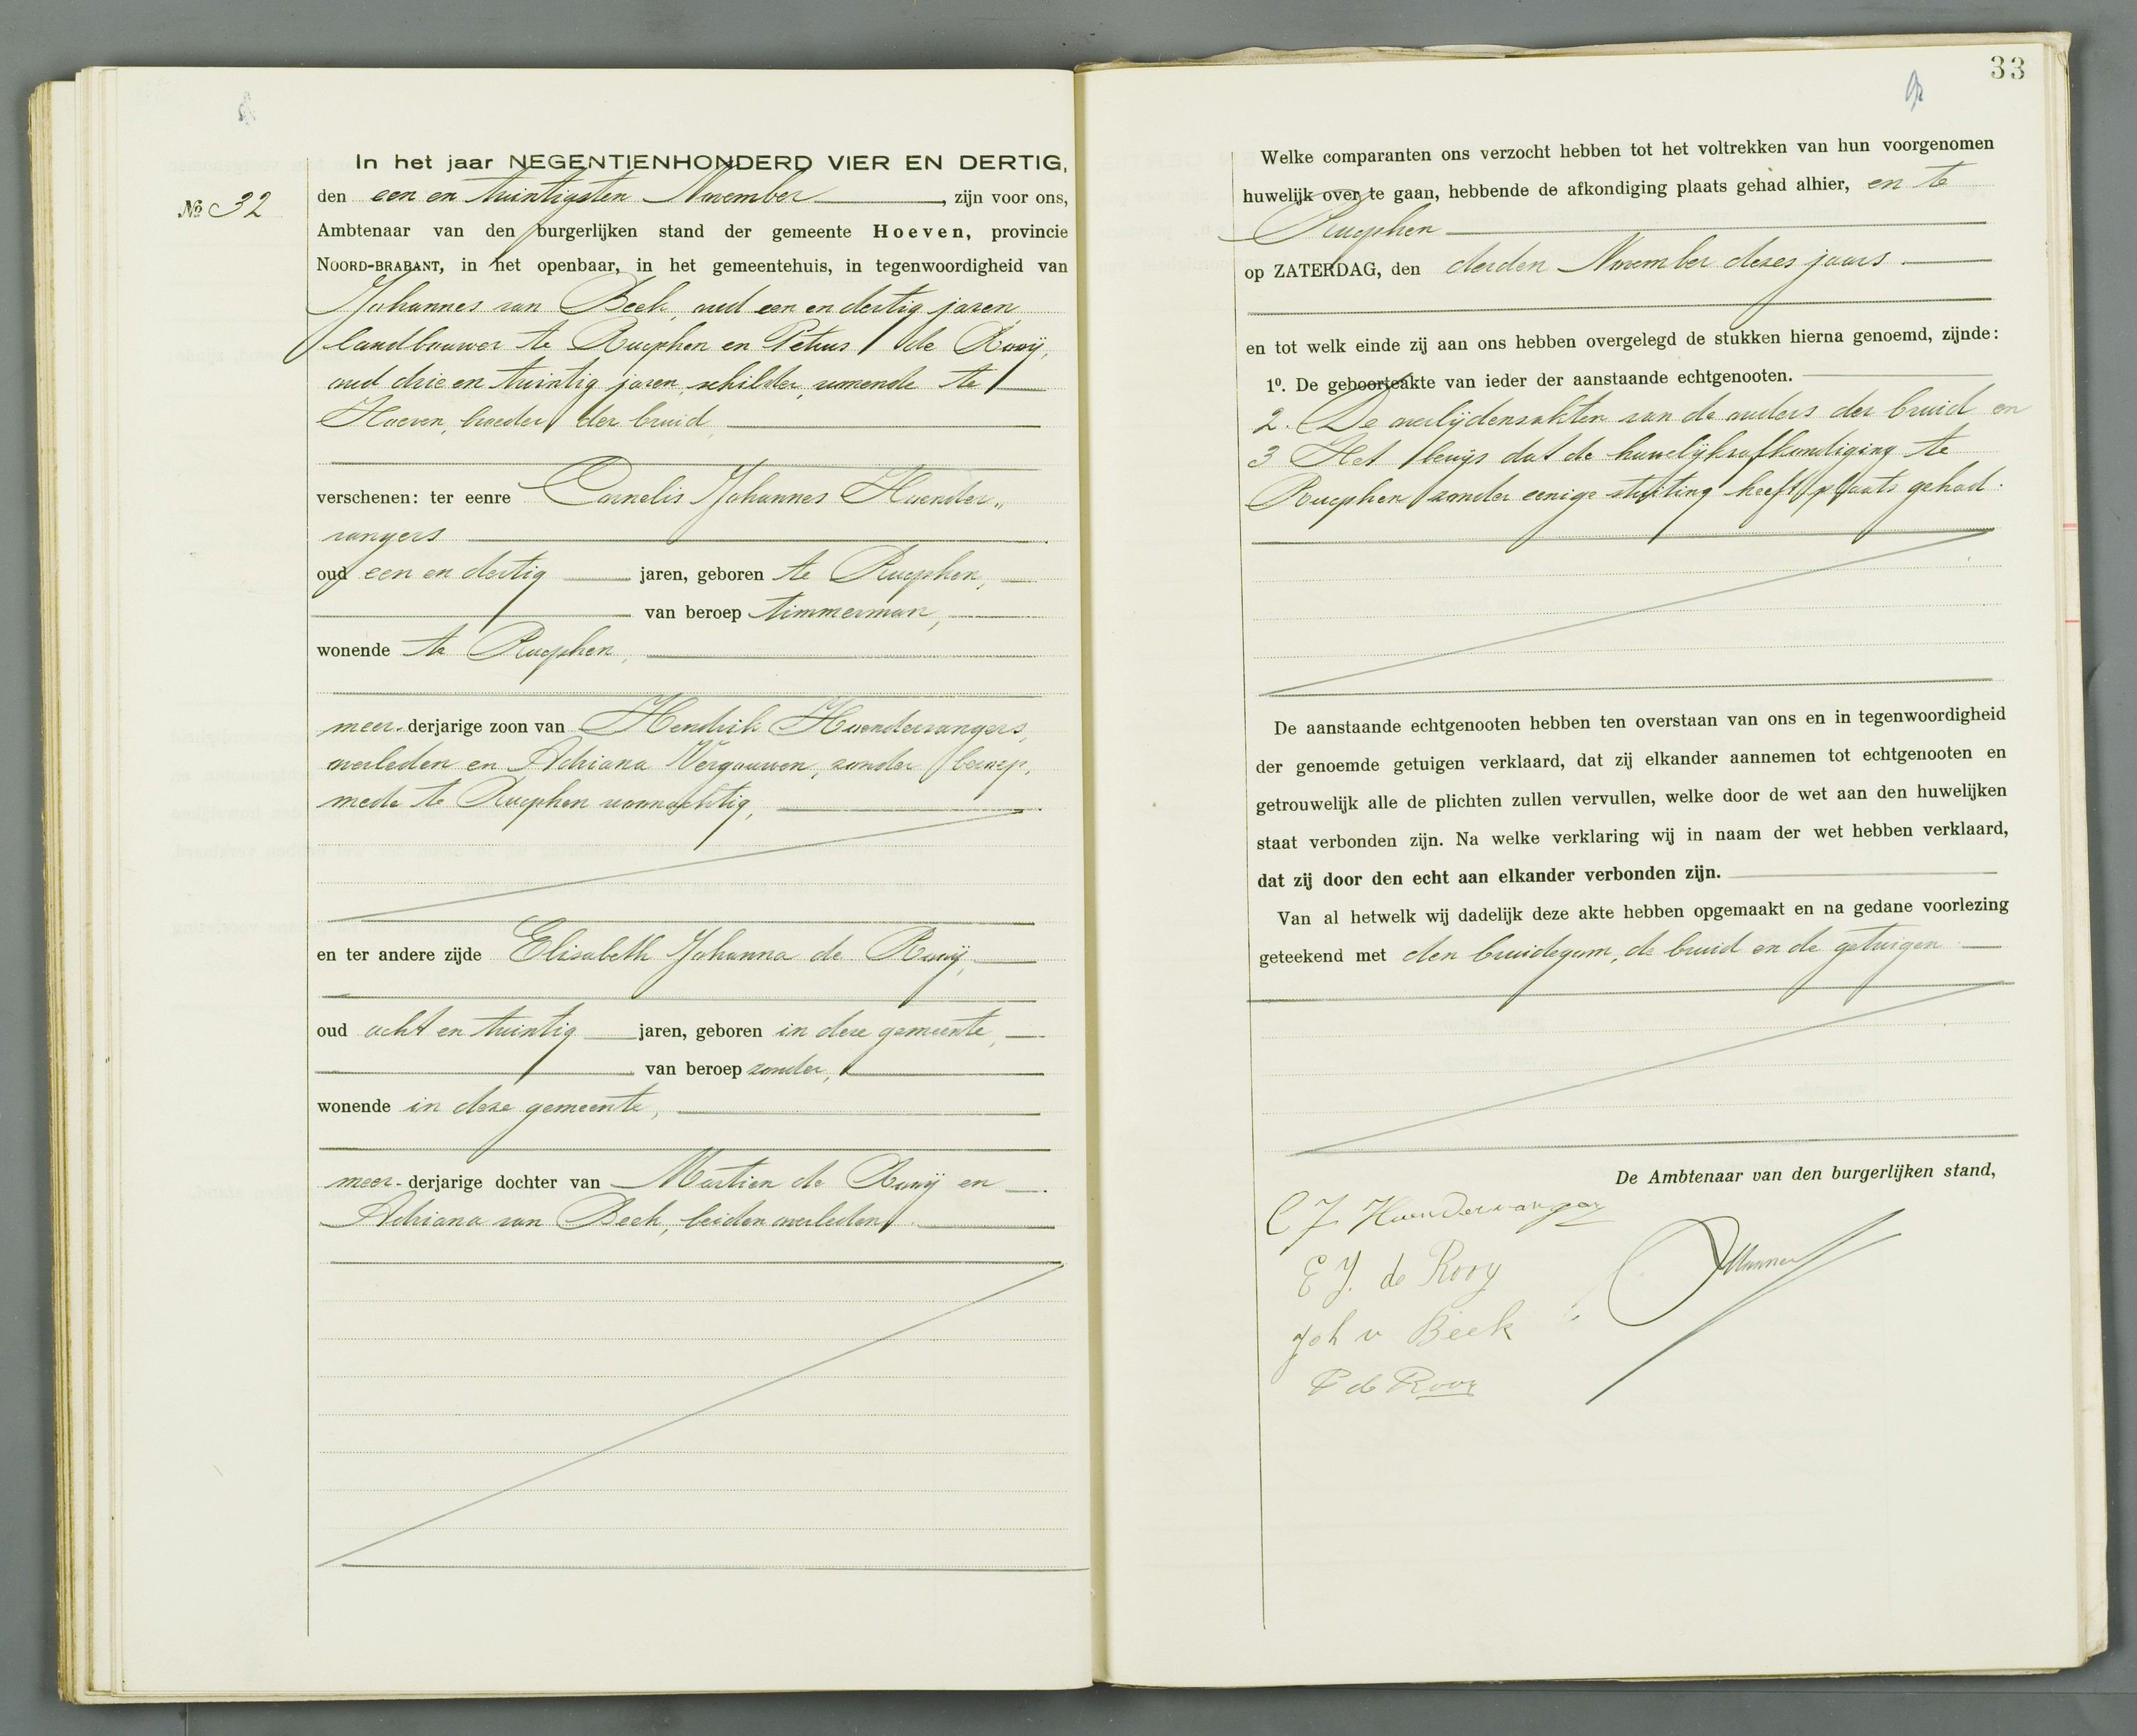 In het jaar NEGENTIENHONDERD VIER EN DERTIG,
№ 32
den een en twintigsten November, zijn voor ons,
Ambtenaar van den burgerlijken stand der gemeente Hoeven, provincie
NOORD-BRABANT, in het openbaar, in het gemeentehuis, in tegenwoordigheid van
Johannes van Beek, oud een en dertig jaren,
landbouwer te Rucphen en Petrus de Rooij,
oud drie en twintig jaren, schilder, wonende te
Hoeven, broeder der bruid,
verschenen: ter eenre Cornelis Johannes Huender„
vangers
oud een en dertig jaren, geboren te Rucphen,
van beroep timmerman,
wonende te Rucphen,
meer-derjarige zoon van Hendrik Huendervangers,
overleden en Adriana Vergouwen, zonder beroep,
mede te Rucphen woonachtig,
en ter andere zijde Elisabeth Johanna de Rooij,
oud acht en twintig jaren, geboren in deze gemeente,
van beroep zonder,
wonende in deze gemeente,
meer-derjarige dochter van Martien de Rooij en
Adriana van Beek, beiden overleden.
33
Welke comparanten ons verzocht hebben tot het voltrekken van hun voorgenomen
huwelijk over te gaan, hebbende de afkondiging plaats gehad alhier, en te
Rucphen
op ZATERDAG, den derden November dezes jaars.
en tot welk einde zij aan ons hebben overgelegd de stukken hierna genoemd, zijnde:
1⁰. De geboorteakte van ieder der aanstaande echtgenooten.
2. De overlijdensakten van de ouders der bruid en
3 Het bewijs dat de huwelijksafkondiging te
Rucphen zonder eenige stuiting heeft plaats gehad.
De aanstaande echtgenooten hebben ten overstaan van ons en in tegenwoordigheid
der genoemde getuigen verklaard, dat zij elkander aannemen tot echtgenooten en
getrouwelijk alle de plichten zullen vervullen, welke door de wet aan den huwelijken
staat verbonden zijn. Na welke verklaring wij in naam der wet hebben verklaard,
dat zij door den echt aan elkander verbonden zijn.
Van al hetwelk wij dadelijk deze akte hebben opgemaakt en na gedane voorlezing
geteekend met den bruidegom, de bruid en de getuigen
De Ambtenaar van den burgerlijken stand,
C J. Huendervangers
E J. de Rooy
Joh v Beek
P de Rooy